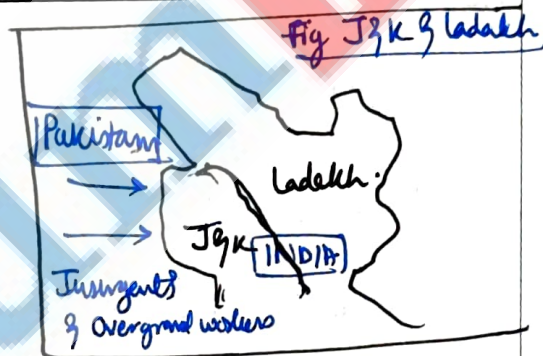 Fig J & K & Ladakh
Pakistan
Ladakh.
J & K
INDIA
Insurgents
& Overground workers